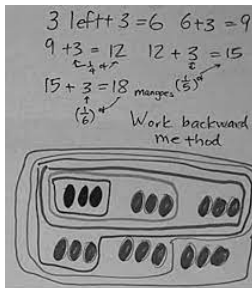 3 left + 3 = 6 6 + 3 = 9
9 + 3 = 12 12 + 3 = 15
1/4 (1/5)
15 + 3 = 18 mangoes
(1/6)
Work backward
method